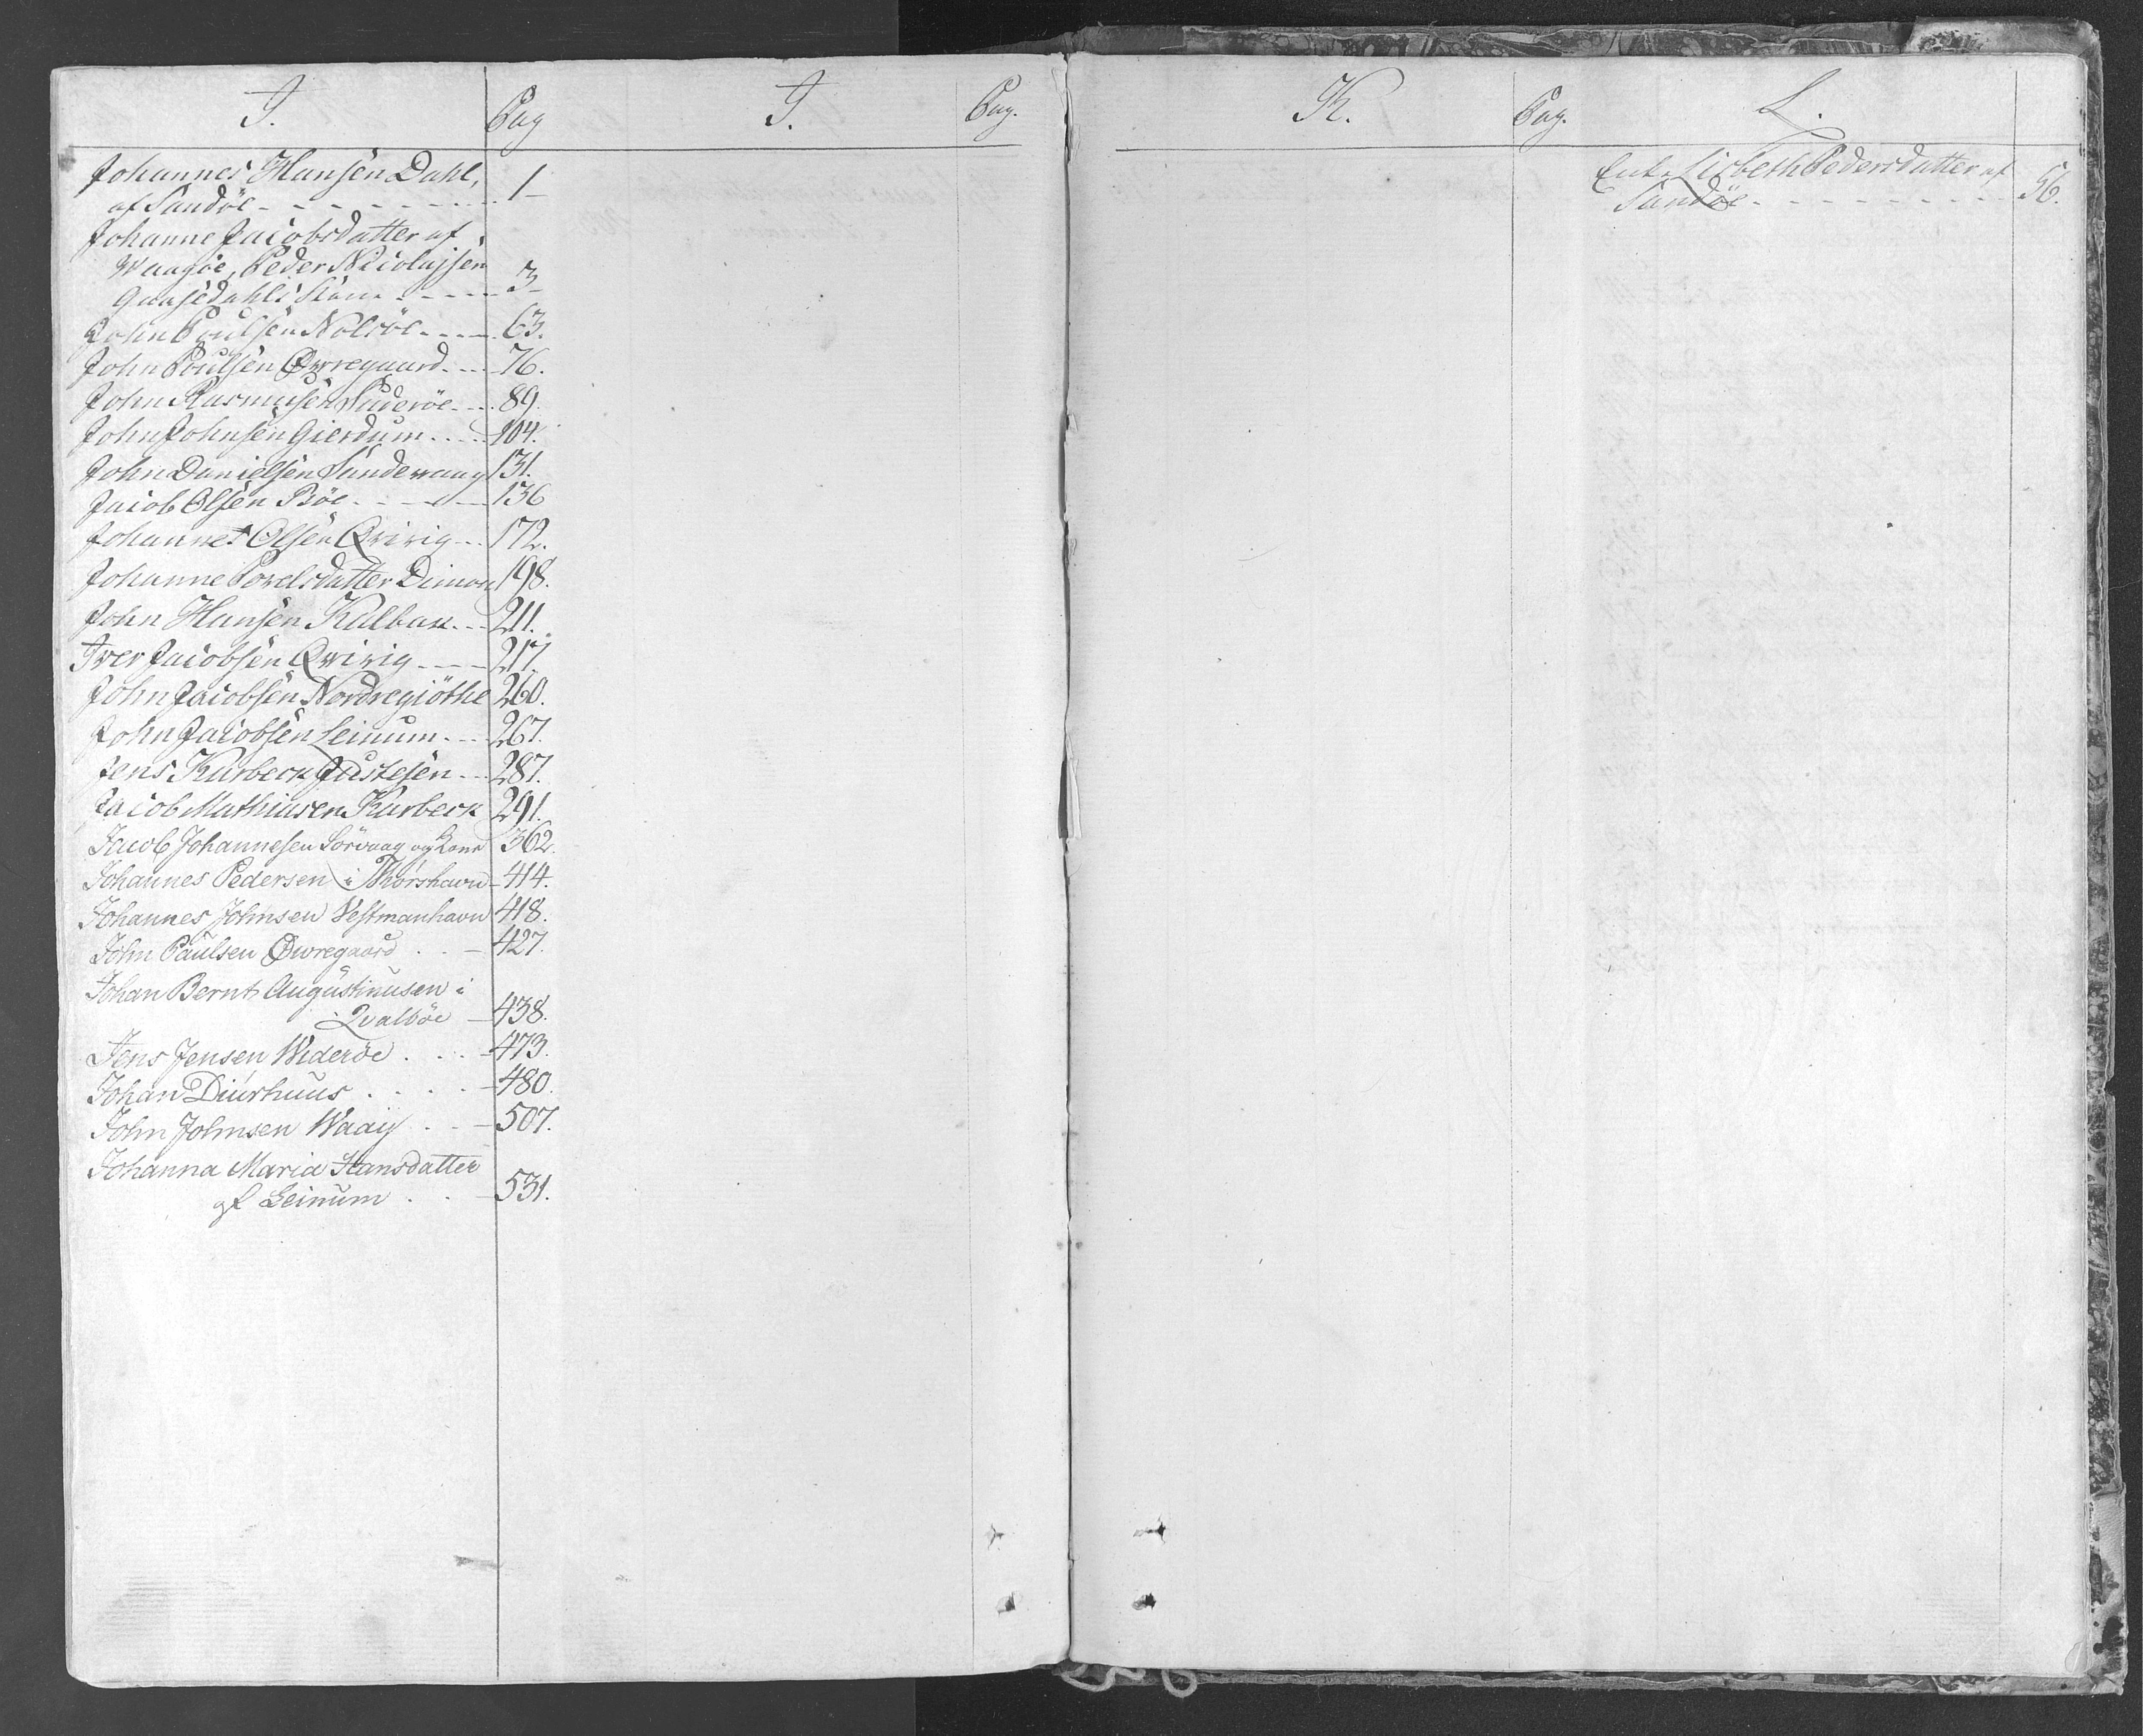 J. Pag
Johannes Hansen Dahl,
af Sandöe - - - - - - - - 1-
Johanne Jacobsdatter af
Waagöe, Peder Nicolajsen
Gaasedahls Kone - - - - - 3-
John Poulsen Nolsöe - - - - 63.
John Poulsen Øvregaard - - - 76.
John Rasmusen Suderöe - - - 89.
John Johnsen Gierdum - - - - 104.
John Danielsen Sundewaag 131.
Jacob Olsen Böe - - - - - 136
Johannes Olsen Qvivig - - - 172.
Johanne Povelsdatter Dimon 198.
John Hansen Kalbak - - - 211.
Iver Jacobsen Qvivig - - - - 217.
John Jacobsen Nordregiöthe 260.
John Jacobsen Leinum - - - 267.
Jens Karbeck Justesen - - - 287.
Jacob Mathiasen Karbeck 291.
Jacob Johannesen Sörvaag og Kone 362.
Johannes Pedersen i Thorshavn - 414.
Johannes Johnsen Vestmanhavn 418.
John Paulsen Øvregaard . . - 427.
Johan Bernt Augustinusen i
Qvalböe - 438.
Jens Jensen Wideröe . . . - 473.
Johan Diurhuus . . . . - 480.
John Johnsen Waag . . - 507.
Johanna Maria Hansdatter
af Leinum . . - 531.
J. Pag.
K. Pag.
L.
Enk. Lisbeth Pedersdatter af
Sandöe - - - - - - - - - - 56.